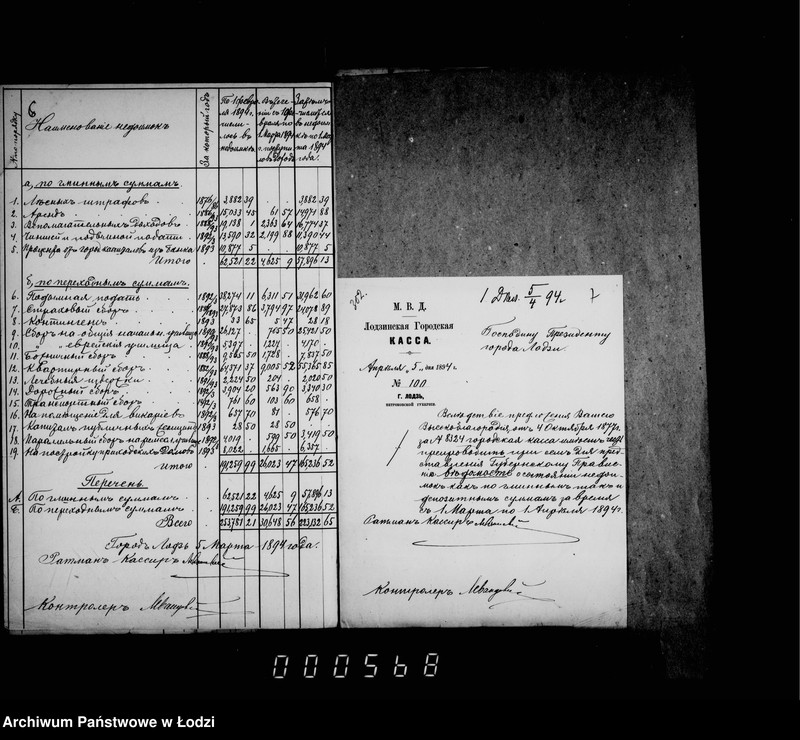 6
№ по порядку
Наименованіе недоимокъ
За который годъ
По 1 февраля 1894 г. числилось въ недоимкѣ
Затѣмъ числится въ недоимкѣ къ 1 Марта 1894 года.
а, по гминнымъ суммамъ.
1. Лѣсныхъ штрафовъ 3882 39 3882 39
2. Арендъ 15,033 45 61 57 14971 88
3. Вспомагательныхъ доходовъ 19,138 1 2363 64 16,774 37
4. Чиншей и подымной подати 13590 32 2,199 88 11,390 44
5. Процента отъ город. капиталовъ изъ банка 1893 10,877 5 10,877 5
Итого 62,521 22 4625 9 57,896 13
б, по переходнымъ суммамъ.
6. Подымная подать 38274 11 6,311 51 31,962 60
7. Страховой сборъ 27,873 86 3,794 97 24,078 89
8. Контингенъ 1893 33 65 5 47 28 18
9. Сборъ на общія начальн. училища 26,127 705 50 25421 50
10. " " еврейскія училища 5397 1,227 4170
11. Больничный сборъ 9,565 50 1,728 7,837 50
12. Квартирный сборъ 64,571 37 9,005 52 55,565 85
13. Лечебныя издержки 2,224 50 204 2,020 50
14. Дорожный сборъ 3,904 20 563 90 3,340 30
15. Транспортный сборъ 761 60 103 60 658
16. На помѣщеніе для викаріевъ 657 70 81 576 70
17. Капиталъ публичныхъ 1893 28 50 28 50
18. 4,019 599 50 3,419 50
19. На постройку приходскихъ домовъ 1893 8,022 1,665 6,357
Итого 191259 99 26,023 47 165236 52
Перечень.
А. По гминнымъ суммамъ 62521 22 4625 9 57,896 13
Б. По переходнымъ суммамъ 191259 99 26023 47 165236 52
Всего 253781 21 30,648 56 223,132 65
Городъ Лодзь 5 Марта 1894 года.
Ратманъ Кассиръ
Контролеръ
302.
5/4 94 г.
7
М. В. Д.
Лодзинская Городская
КАССА.
Апрѣля „5„ дня 1894 г.
№ 100
Г. ЛОДЗЬ,
ПЕТРОКОВСКОЙ ГУБЕРНІИ.
Господину Президенту
города Лодзи.
Вслѣдствіе предложенія Вашего
Высокоблагородія, отъ 4 Октября 1877 г.
за № 8324 городская касса имѣетъ честь
препроводить при семъ для пред-
ставленія Губернскому Правле-
нію вѣдомость о состояніи недои-
мокъ какъ по гминнымъ такъ и
депозитнымъ суммамъ за время
съ 1 Марта по 1 Апрѣля 1894 г.
Ратманъ Кассиръ
Контролеръ
000568
Archiwum Państwowe w Łodzi